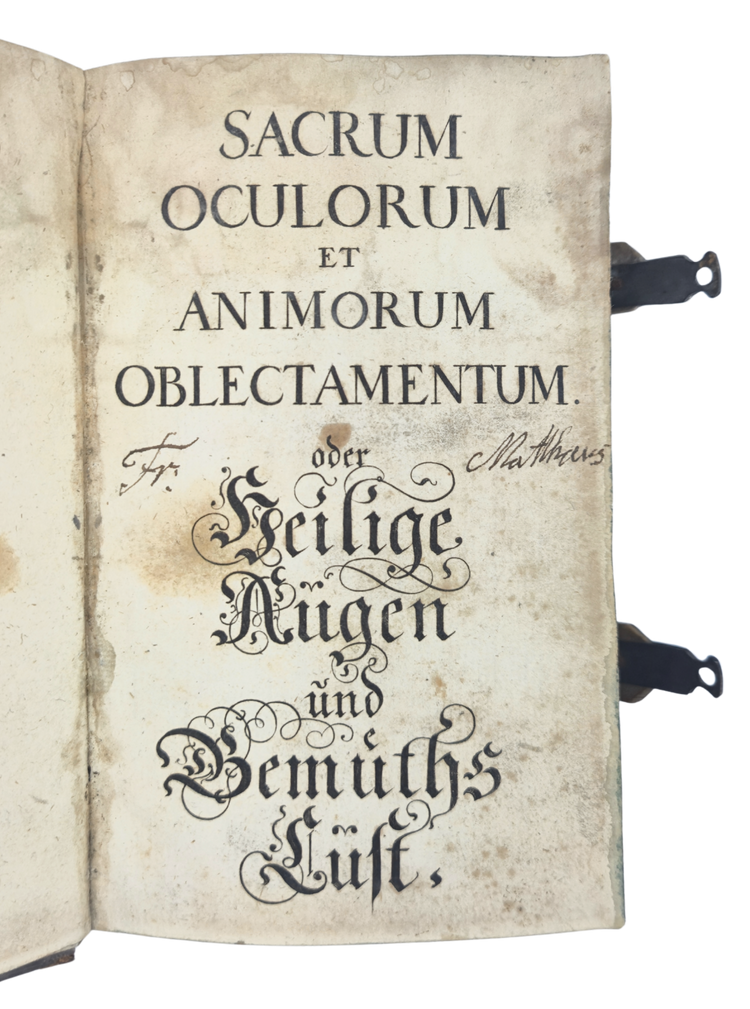 SACRUM
OCULORUM
ET
ANIMORUM
OBLECTAMENTUM.
oder
Fr. Matthæus
Heilige
Aügen
ünd
Gemuͤths
Lüſt.